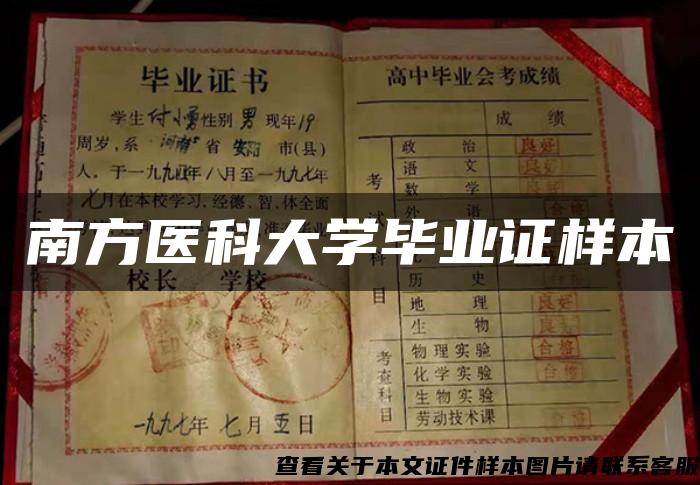 毕业证书
学生付小勇性别男现年19
周岁,系河南省安阳市(县)
人,于一九九四年八月至一九九七年
七月在本校学习,经德、智、体全面
校长 学校
一九九七年七月五日
高中毕业会考成绩
成绩
考试科目
政治 良好
语文 良好
数学
外语 合格
历史
地理 良好
生物 良好
考查科目
物理实验 合格
化学实验 合格
生物实验
劳动技术课
南方医科大学毕业证样本
查看关于本文证件样本图片请联系客服